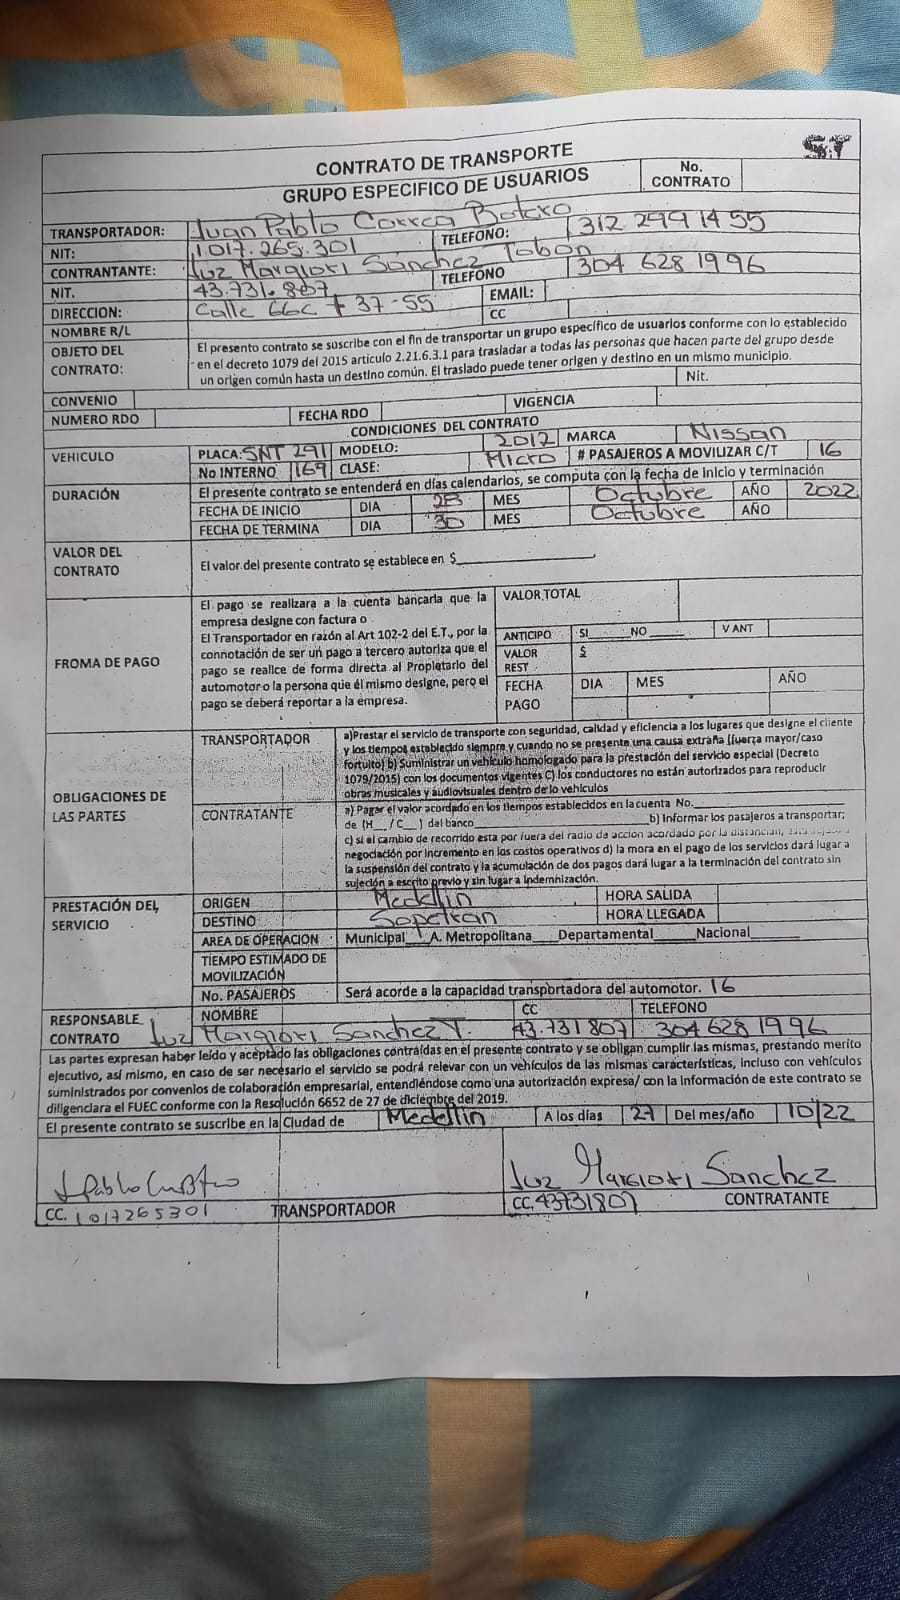 ST
CONTRATO DE TRANSPORTE
GRUPO ESPECIFICO DE USUARIOS
No. CONTRATO
TRANSPORTADOR: Juan Pablo Correa Botero
NIT: 1.017.265.301 TELEFONO: 312 299 14 55
CONTRANTANTE: Luz Margiori Sánchez Tobon
NIT. 43.731.807 TELEFONO 304 628 1996
DIRECCION: Calle 66C # 37-55 EMAIL:
NOMBRE R/L CC
OBJETO DEL CONTRATO: El presento contrato se suscribe con el fin de transportar un grupo específico de usuarios conforme con lo establecido
en el decreto 1079 del 2015 articulo 2.21.6.3.1 para trasladar a todas las personas que hacen parte del grupo desde
un origen común hasta un destino común. El traslado puede tener origen y destino en un mismo municipio.
CONVENIO Nit.
NUMERO RDO FECHA RDO VIGENCIA
CONDICIONES DEL CONTRATO
VEHICULO PLACA: SNT 291 MODELO: 2012 MARCA Nissan
No INTERNO 169 CLASE: Micro # PASAJEROS A MOVILIZAR C/T 16
DURACIÓN El presente contrato se entenderá en días calendarios, se computa con la fecha de inicio y terminación
FECHA DE INICIO DIA 28 MES Octubre AÑO 2022
FECHA DE TERMINA DIA 30 MES Octubre AÑO
VALOR DEL CONTRATO El valor del presente contrato se establece en $
FROMA DE PAGO El pago se realizara a la cuenta bancaria que la
empresa designe con factura o
El Transportador en razón al Art 102-2 del E.T., por la
connotación de ser un pago a tercero autoriza que el
pago se realice de forma directa al Propietario del
automotor o la persona que él mismo designe, pero el
pago se deberá reportar a la empresa.
VALOR TOTAL
ANTICIPO SI NO V ANT
VALOR REST $
FECHA PAGO DIA MES AÑO
OBLIGACIONES DE LAS PARTES
TRANSPORTADOR a)Prestar el servicio de transporte con seguridad, calidad y eficiencia a los lugares que designe el cliente
y los tiempos establecido siempre y cuando no se presente una causa extraña [fuerza mayor/caso
fortuito) b) Suministrar un vehículo homologado para la prestación del servicio especial (Decreto
1079/2015) con los documentos vigentes C) los conductores no están autorizados para reproducir
obras musicales y audiovisuales dentro de lo vehículos
CONTRATANTE a) Pagar el valor acordado en los tiempos establecidos en la cuenta No.
de (H__/C__) del banco b) Informar los pasajeros a transportar;
c) si el cambio de recorrido esta por fuera del radio de acción acordado por la
negociación por incremento en los costos operativos d) la mora en el pago de los servicios dará lugar a
la suspensión del contrato y la acumulación de dos pagos dará lugar a la terminación del contrato sin
sujeción a escrito previo y sin lugar a indemnización.
PRESTACIÓN DEL SERVICIO
ORIGEN Medellin HORA SALIDA
DESTINO Sopetran HORA LLEGADA
AREA DE OPERACIÓN Municipal A. Metropolitana Departamental Nacional
TIEMPO ESTIMADO DE MOVILIZACIÓN
No. PASAJEROS Será acorde a la capacidad transportadora del automotor. 16
RESPONSABLE CONTRATO NOMBRE CC TELEFONO
Luz Margiori Sanchez T. 43.731807 304 628 1996
Las partes expresan haber leído y aceptado las obligaciones contraídas en el presente contrato y se obligan cumplir las mismas, prestando merito
ejecutivo, así mismo, en caso de ser necesario el servicio se podrá relevar con un vehículos de las mismas características, incluso con vehículos
suministrados por convenios de colaboración empresarial, entendiéndose como una autorización expresa/ con la información de este contrato se
diligenciara el FUEC conforme con la Resolución 6652 de 27 de diciembre del 2019.
El presente contrato se suscribe en la Ciudad de Medellin A los días 27 Del mes/año 10/22
Luz Margiori Sanchez
CC. 1017265301 TRANSPORTADOR CC. 43731807 CONTRATANTE